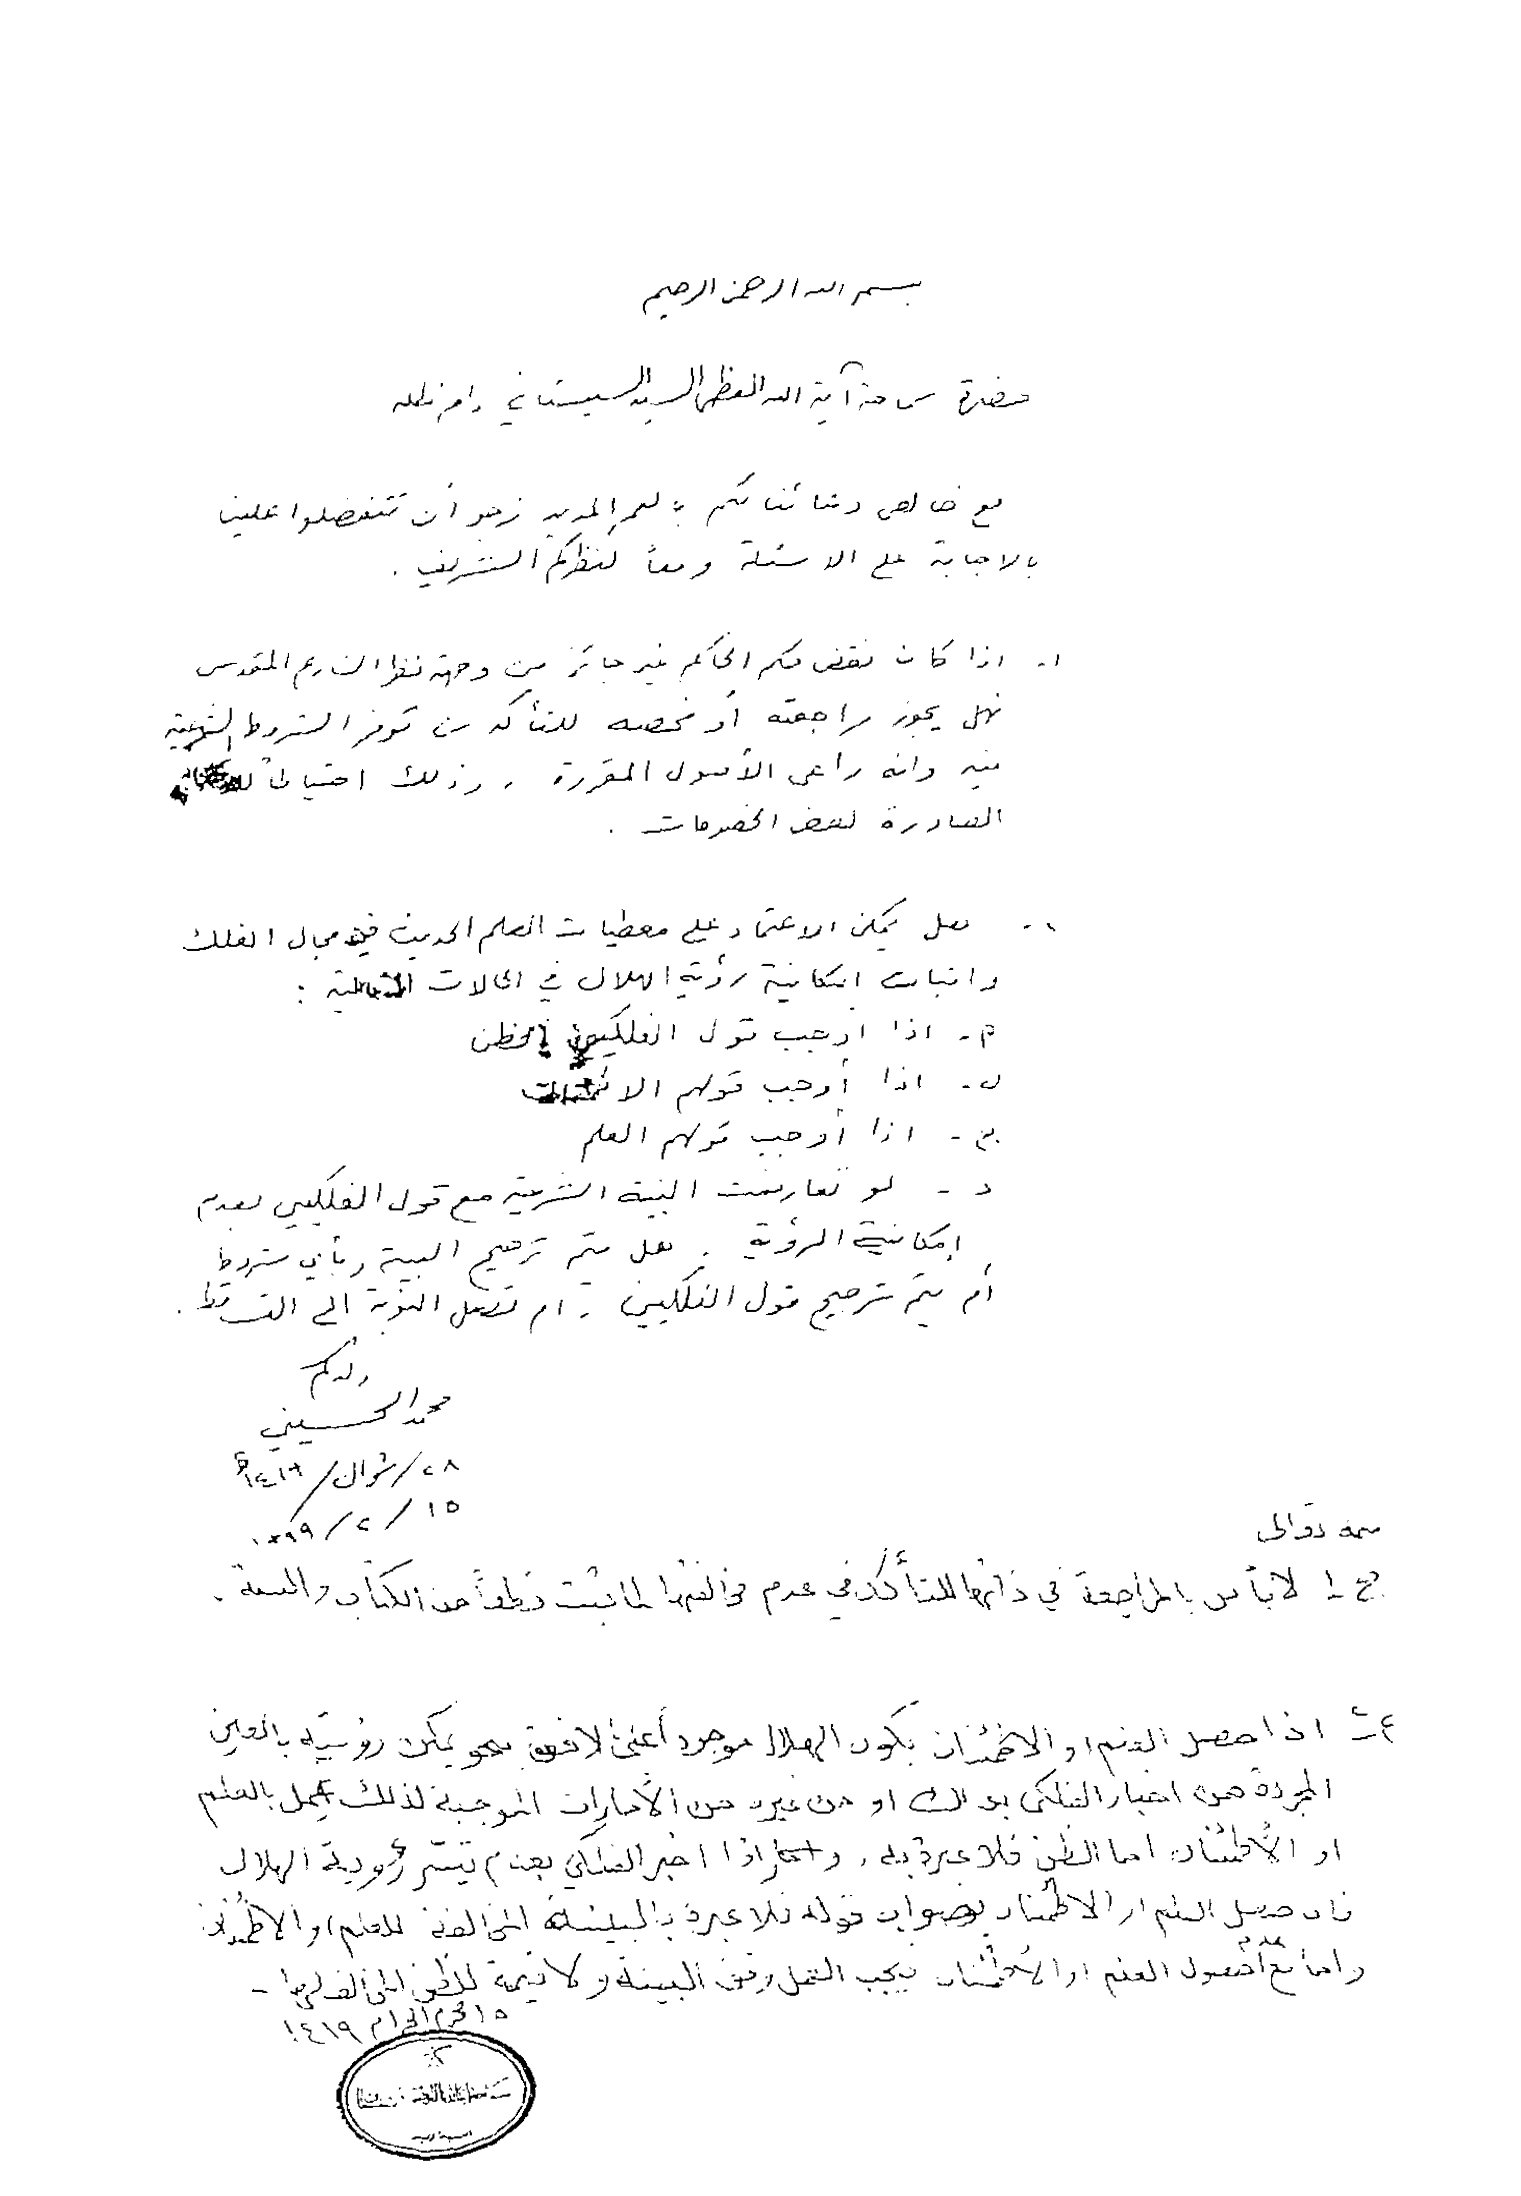 بسم الله الرحمن الرحيم
حضرة سماحة آية الله العظمى السيد السيستاني دام ظله
مع خالص دعائنا لكم بالعمر المديد نرجو أن تتفضلوا علينا
بالاجابة على الاسئلة وفقاً لنظركم الشريف .
١- اذا كان نقض حكم الحاكم غير جائز من وجهة نظر الشارع المقدس
فهل يجوز مراجعته أو فحصه للتأكد من توفر الشروط الشرعية
فيه وانه راعى الأصول المقررة ، وذلك احتياطاً
الصادرة لفض الخصومات .
٢- هل يمكن الاعتماد على معطيات العلم الحديث في مجال الفلك
واثبات امكانية رؤية الهلال في الحالات التالية :
أ- اذا أوجب قول الفلكيين الظن
ب- اذا أوجب قولهم الاطمئنان
ج- اذا أوجب قولهم العلم
د- لو تعارضت البينة الشرعية مع قول الفلكيين بعدم
إمكانية الرؤية ، هل يتم ترجيح البينة وبأي شروط
أم يتم ترجيح قول الفلكيين ، ام تصل النوبة الى التساقط .
ولدكم
محمد الحسيني
٢٨/شوال/١٤١٩هـ
١٥/٢/١٩٩٩
بسمه تعالى
ج١ لا بأس بالمراجعة في ذاتها للتأكد في عدم مخالفتها لما ثبت قطعاً من الكتاب والسنة .
ج٢ اذا حصل العلم او الاطمئنان بكون الهلال موجود أعلى الافق بنحو يمكن رؤيته بالعين
المجردة من اخبار الفلكي بذلك او من غيره من الأمارات الموجبة لذلك يعمل بالعلم
او الأطمئنان اما الظن فلا عبرة به ، واما اذا اخبر الفلكي بعدم تيسّر رؤية الهلال
فان حصل العلم او الاطمئنان بصواب قوله فلا عبرة بالبينة المخالفة للعلم او الاطمئنان
واما مع عدم حصول العلم او الأطمئنان فيجب العمل وفق البينة ولا قيمة للظن المخالف لها -
١٥ محرم الحرام ١٤١٩